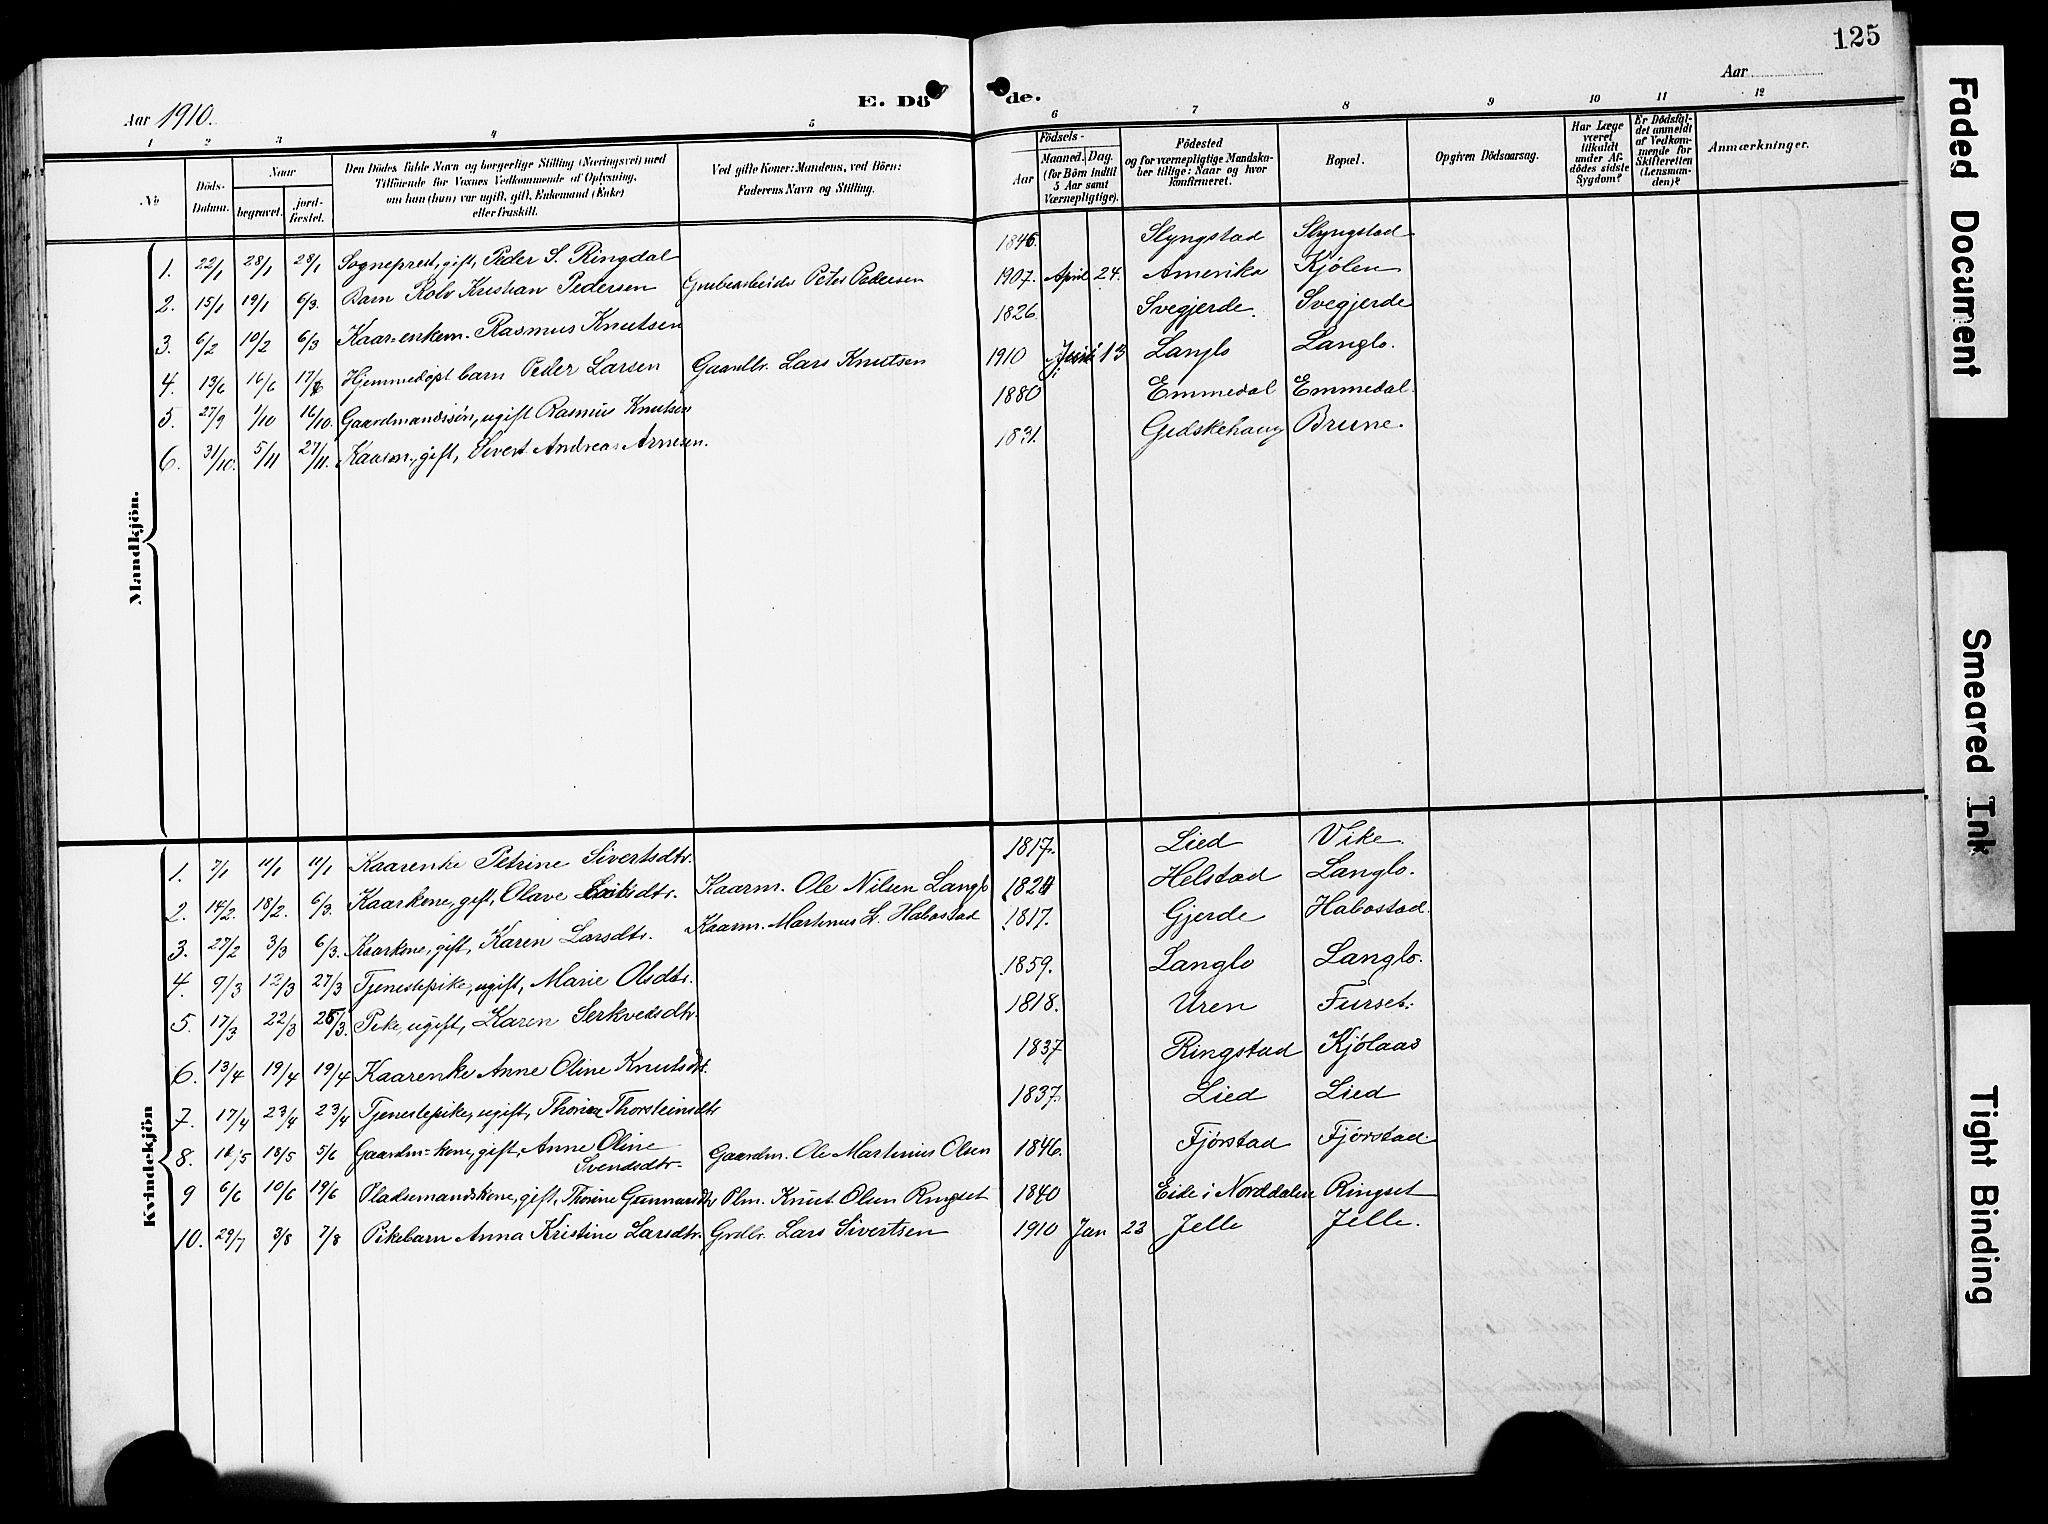 125
Aar 1910.
E. Dö de.
Aar
1 2 3 4 5 6 7 8 9 10 11 12
No
Döds-Datum.
Naar
begravet.
jord-fæstet.
Den Dödes fulde Navn og borgerlige Stilling (Næringsvei) med
Tilföiende for Voxnes Vedkommende af Oplysning,
om han (hun) var ugift, gift, Enkemand (Enke)
eller fraskilt.
Ved gifte Koner: Mandens, ved Börn:
Faderens Navn og Stilling.
Födsels-
Aar
Maaned. Dag.
(for Börn indtil
5 Aar samt
Værnepligtige).
Födested
og for værnepligtige Mandska-
ber tillige: Naar og hvor
konfirmeret.
Bopæl.
Opgiven Dödsaarsag.
Har Læge
været
tilkaldt
under Af-
dödes sidste
Sygdom?
Er Dödsfal-
det anmeldt
af Vedkom-
mende for
Skifteretten
(Lensman-
den)?
Anmærkninger.
Mandkjön.
1. 22/1 28/1 28/1 Sogneprest, gift, Peder S. Ringdal 1846. Slyngstad Slyngstad
2. 15/1 19/1 6/3. Barn Rolv Kristian Pedersen Grubearbeider Peter Pedersen 1907. April 24. Amerika Kjölen
3. 6/2 10/2 6/3 Kaar-enkem. Rasmus Knutsen 1826. Svegjerde. Svegjerde
4. 13/6 16/6 17/ Hjemmedöpt barn Peder Larsen Gaardbr. Lars Knutsen 1910 13 Langlo Langlo.
5. 27/9 1/10 16/10. Gaardmandssön, ugift Rasmus Knutsen 1880 Emmedal Emmedal.
6. 31/10. 5/11 27/11. Kaarm., gift, Sivert Andreas Arnesen. 1831. Gidskehaug Brune.
Kvindekjön
1. 7/1 11/1 11/1 Kaarenke Petrine Sivertsdtr. 1817. Lied Vike.
2. 14/2. 18/2. 6/3. Kaarkone, gift, Olave Kaarm. Ole Nilsen Langlo Helstad Langlo.
3. 27/2 3/3 6/3. Kaarkone, gift, Karen Larsdtr. Kaarm. Martinus L. Habostad 1817. Gjerde Habostad.
4. 9/3 12/3 27/3 Tjenestepike, ugift, Marie Olsdtr. 1859. Langlo Langlo.
5. 17/3 22/3 25/3. Pike, ugift, Karen Serkvelsdtr. 1818. Uren Furset.
6. 13/4 19/4 19/4 Kaarenke Anne Oline Knutsdtr. 1837 Ringstad Kjölaas
7. 17/4 23/4 23/4 Tjenestepike, ugift, Thorine Thorsteinsdtr 1837. Lied Lied
8. 18/5 5/6 Gaardm-kone, gift, Anne Oline
Svendsdtr. Gaardm. Ole Martinius Olsen 1846. Fjörstad Fjörstad.
9 6/6 10/6 19/6 Pladsemandskone, gift, Thorine Gunnarsdtr Plm. Knut Olsen Ringset 1840 Eide i Norddalen Ringset
10. 29/7 3/8 7/8 Pikebarn Anna Kristine Larsdtr. Grdbr. Lars Sivertsen 1910 Jan 23 Jelle Jelle.
Faded Document
Smeared Ink
Tight Binding